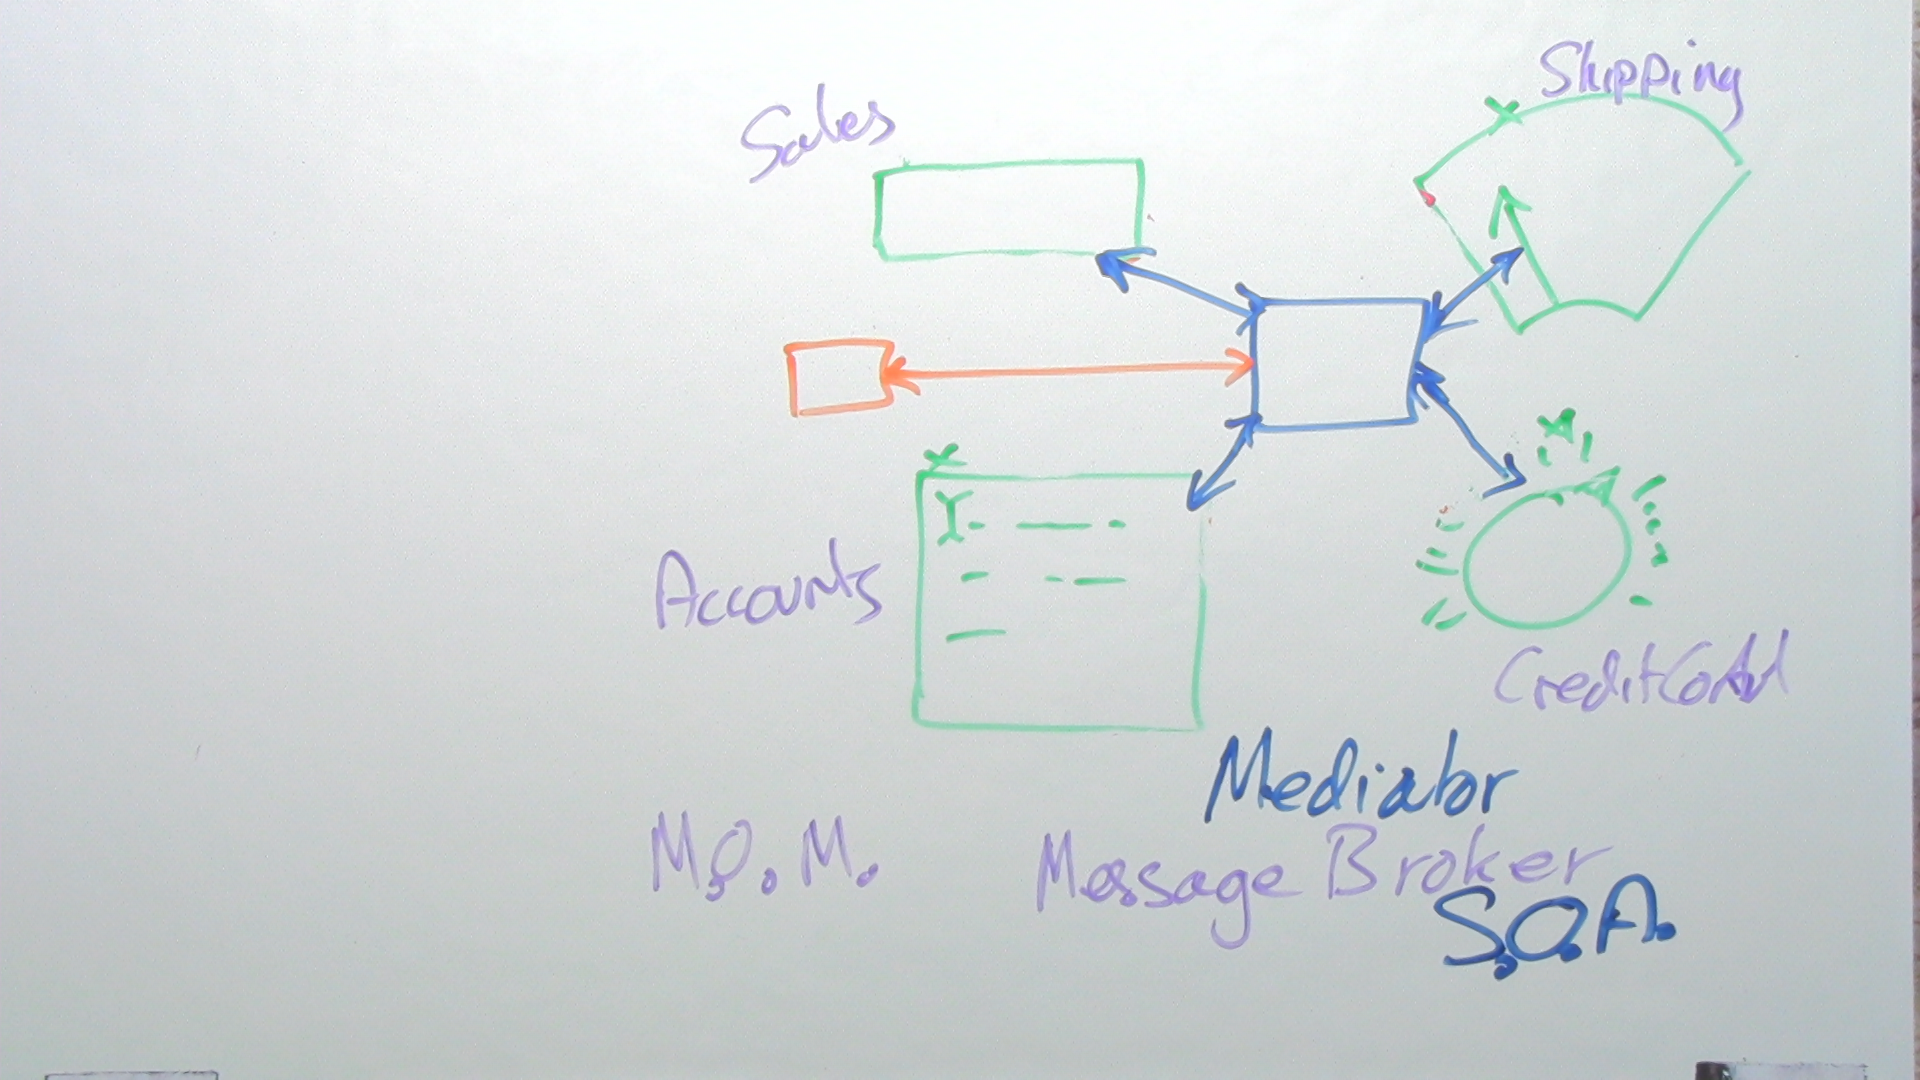 Shipping
Sales
Accounts
CreditCard
Mediator
M.O.M.
Message Broker
S.O.A.